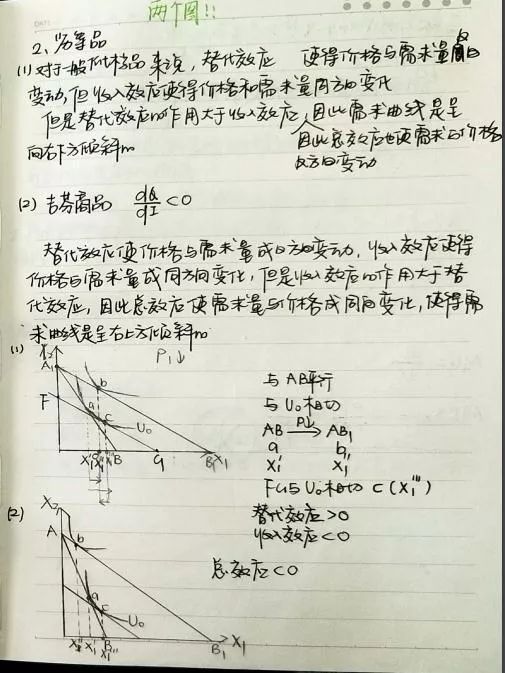 两个图!!
2、劣等品
(1) 对于一般低档品来说,替代效应 使得价格与需求量成反
变动,但收入效应使得价格和需求量同方向变化
但是替代效应的作用大于收入效应,因此需求曲线是呈
向右下方倾斜的
因此总效应也使需求与价格
反方向变动
(2) 吉芬商品 dQ/dI <0
替代效应使价格与需求量成反方向变动,收入效应使得
价格与需求量成同方向变化,但是收入效应的作用大于替
代效应,因此总效应使需求量与价格成同向变化,使得需
求曲线是呈右上方倾斜的
(1) X₂ P₁↓
A
F
a b c U₀
X₁' X₁''' X₁'' B G B₁ X₁
与AB平行
与U₀相切
AB P↓→ AB₁
a b
X₁' X₁''
FG与U₀相切 C (X₁''')
替代效应>0
收入效应<0
总效应<0
(2) X₂
A b
a
c
U₀
X₁'' X₁' X₁''' B B₁ X₁